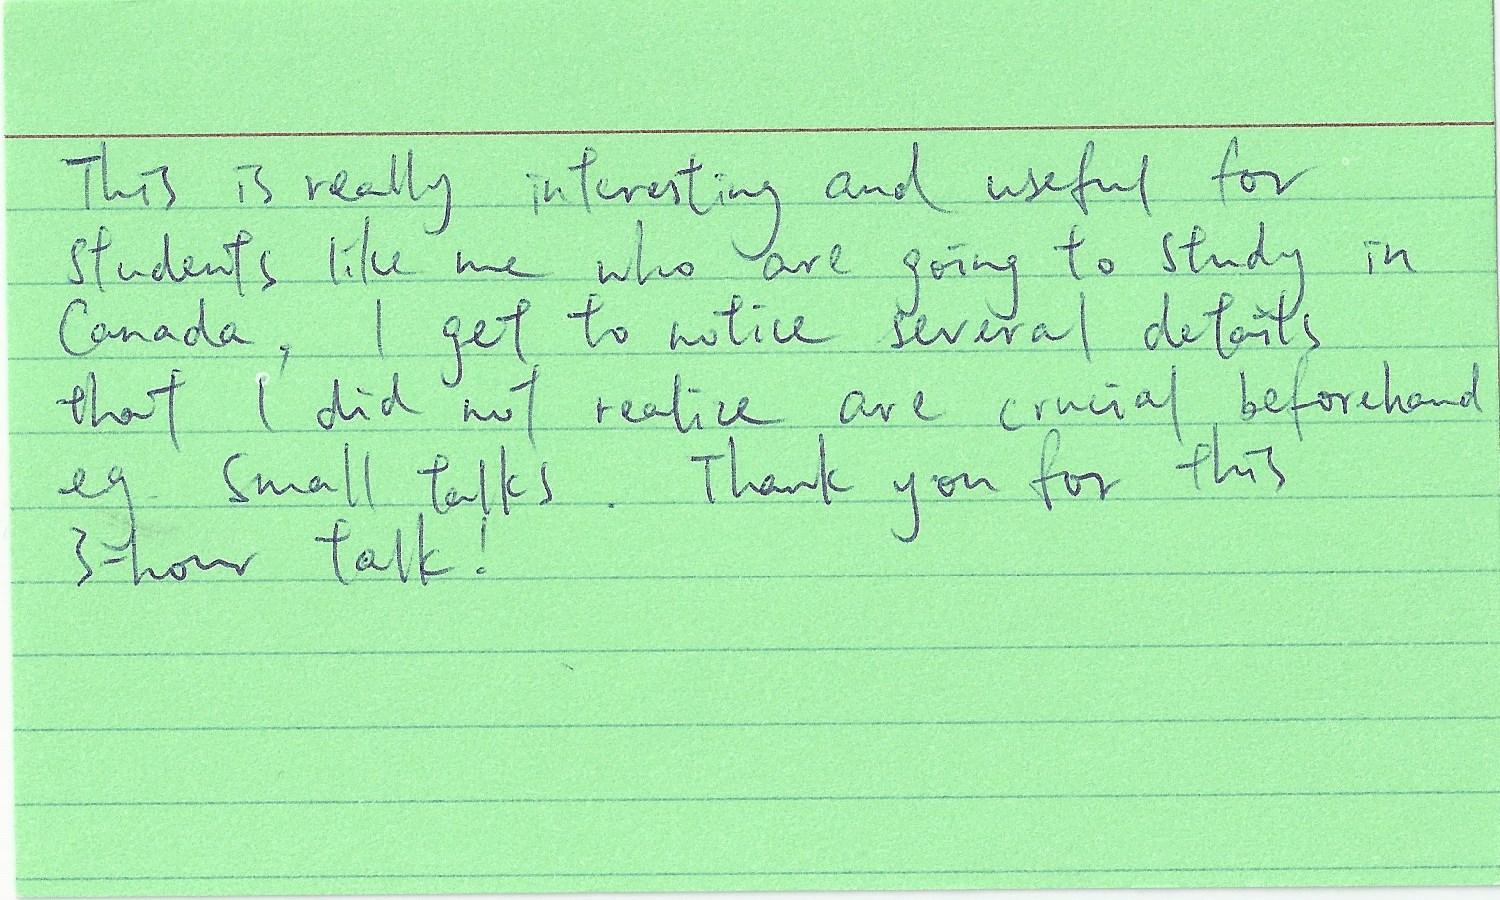 This is really interesting and useful for
students like me who are going to study in
Canada, I get to notice several details
that I did not realize are crucial beforehand
eg. small talks. Thank you for this
3-hour talk!